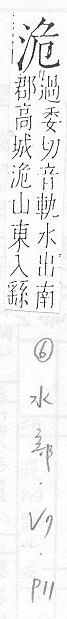 洈
過委切音軌水出南
郡高城洈山東入繇
⑥水部.V7.P11